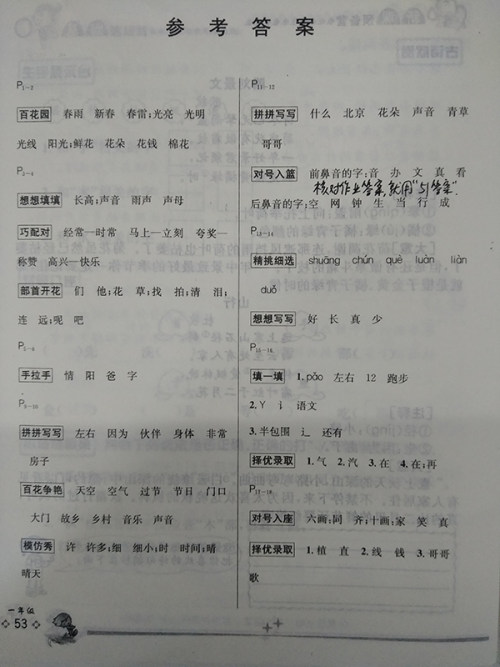 参考答案
P1-2
百花园 春雨 新春 春雷;光亮 光明
光线 阳光;鲜花 花朵 花钱 棉花
想想填填 长高;声音 雨声 声母
巧配对 经常一时常 马上一立刻 夸奖一
称赞 高兴一快乐
部首开花 们 他;花 草;找 拍;清 泪;
连 远;呢 吧
手拉手 情 阳 爸 字
P9-10
拼拼写写 左右 因为 伙伴 身体 非常
房子
百花争艳 天空 空气 过节 节日 门口
大门 故乡 乡村 音乐 声音
模仿秀 许 许多;细 细小;时 时间;晴
晴天
一年级
53
P11-12
拼拼写写 什么 北京 花朵 声音 青草
哥哥
对号入篮 前鼻音的字:音 办 文 真 看
核对作业答案,就用"51答案".
后鼻音的字:空 网 钟 生 当 行 成
精挑细选 shuāng chún què luàn liàn
duǒ
想想写写 好 长 真 少
填一填 1.pǎo 左右 12 跑步
2.Y 讠 语文
3.半包围 辶 还有
择优录取 1.气 2.汽 3.在 4.在;再
P17-18
对号入座 六画;同 齐;十画;家 笑 真
择优录取 1.植 直 2.线 钱 3.哥哥
歌